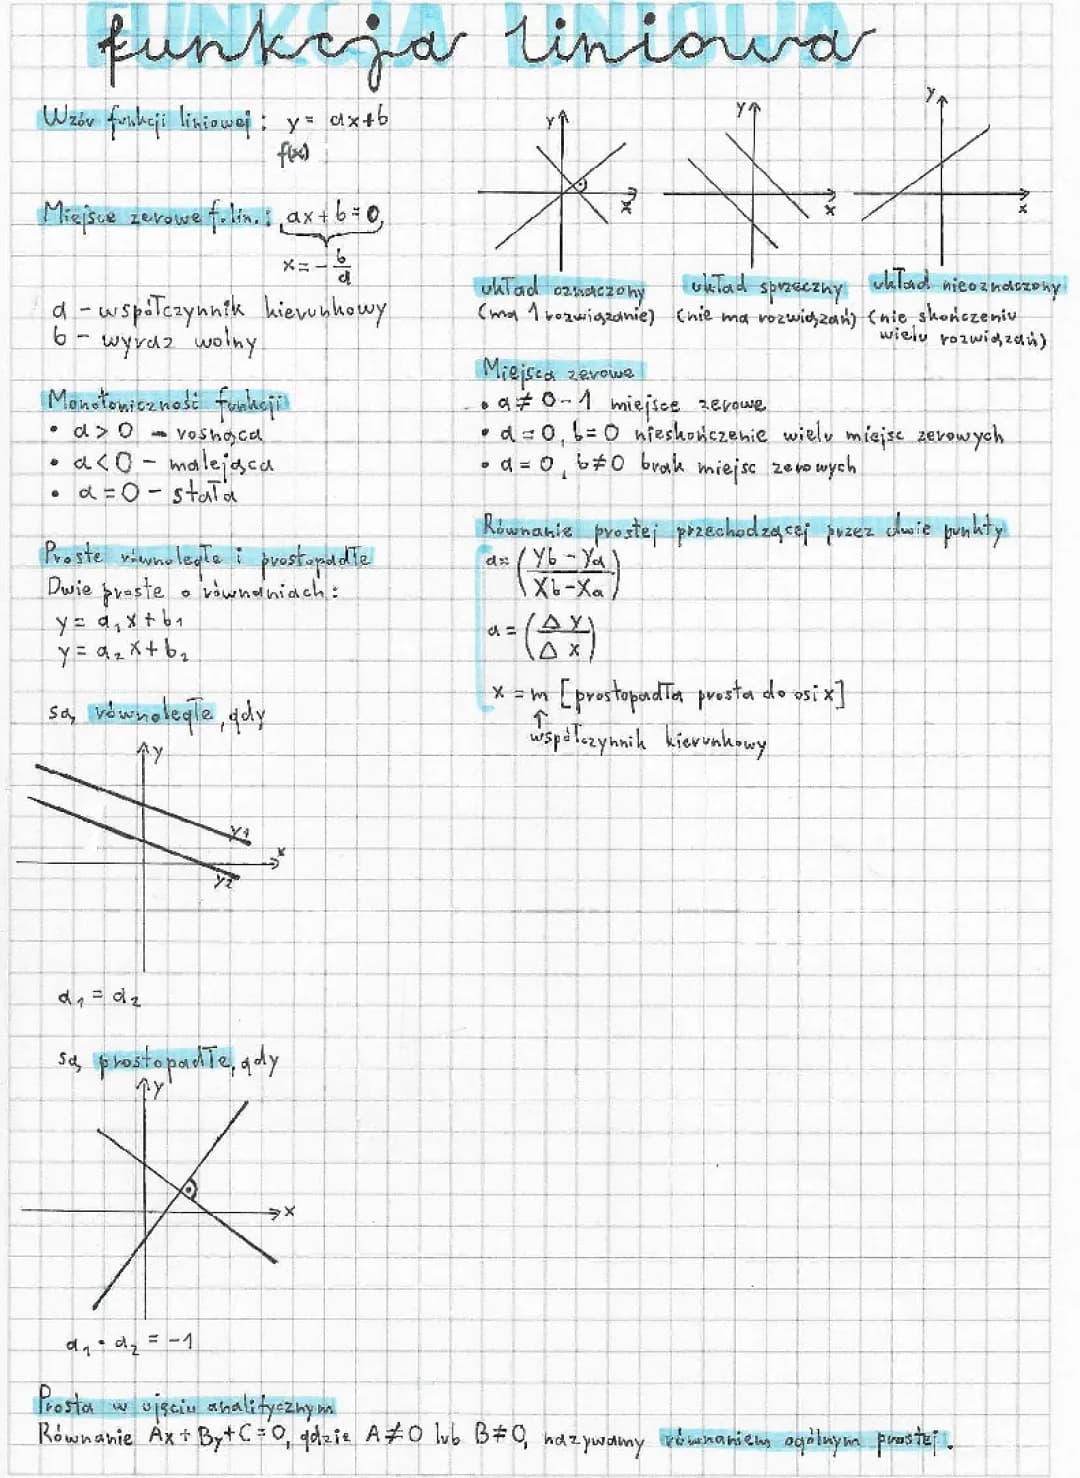 funkcja liniowa
Wzór funkcji liniowej: y = ax+b
f(x)
Miejsce zerowe f. lin.: ax+b=0,
x = -b/a
a - współczynnik kierunkowy
b - wyraz wolny
Monotoniczność funkcji
• a > 0 - rosnąca
• a < 0 - malejąca
• a = 0 - stała
Proste równoległe i prostopadłe
Dwie proste o równaniach:
y = a₁x + b₁
y = a₂x + b₂
są równoległe, gdy
y
y1
x
y2
a₁ = a₂
są prostopadłe, gdy
y
x
a₁ • a₂ = -1
y
x
y
x
y
x
układ oznaczony
(ma 1 rozwiązanie)
układ sprzeczny
(nie ma rozwiązań)
układ nieoznaczony
(nie skończeniu
wielu rozwiązań)
Miejsca zerowe
• a ≠ 0 - 1 miejsce zerowe
• a = 0, b = 0 nieskończenie wielu miejsc zerowych
• a = 0, b ≠ 0 brak miejsc zerowych
Równanie prostej przechodzącej przez dwie punkty
a = (Yb - Ya / Xb - Xa)
a = (Δ Y / Δ X)
x = m [prostopadła prosta do osi x]
↑
współczynnik kierunkowy
Prosta w ujęciu analitycznym
Równanie Ax + By + C = 0, gdzie A ≠ 0 lub B ≠ 0, nazywamy równaniem ogólnym prostej.